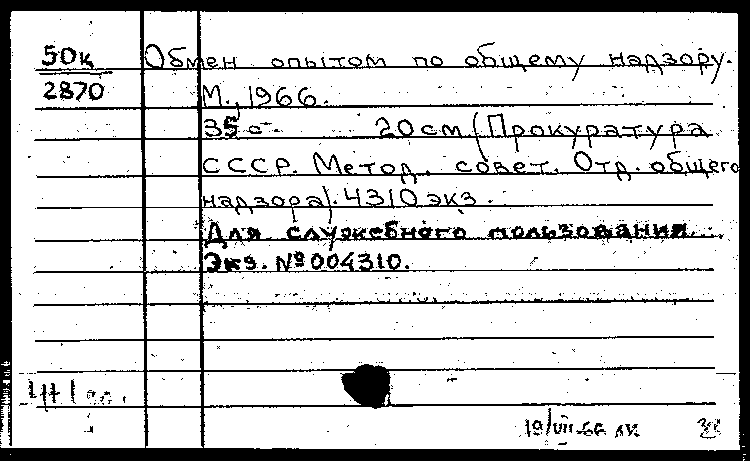 50к Обмен опытом по общему надзору.
2870 М., 1966.
35 с. 20 см (Прокуратура
СССР. Метод. совет. Отд. общего
надзора). 4310 экз.
Для служебного пользования.
Экз. № 004310.
19/VII-66